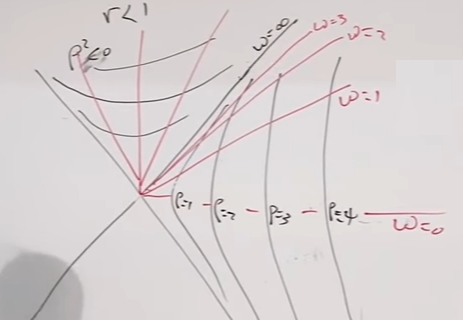 r<1
ρ²<0
ω=∞
ω=3
ω=2
ω=1
ρ=1
ρ=2
ρ=3
ρ=4
ω=0